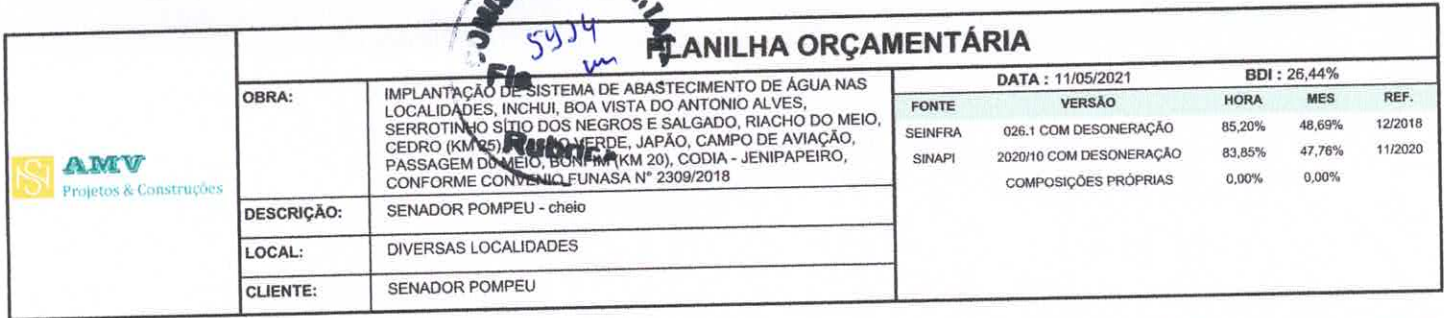 PLANILHA ORÇAMENTÁRIA
5414
Fls
Rubrica
AMV
Projetos & Construções
OBRA:
IMPLANTAÇÃO DE SISTEMA DE ABASTECIMENTO DE ÁGUA NAS
LOCALIDADES, INCHUI, BOA VISTA DO ANTONIO ALVES,
SERROTINHO SÍTIO DOS NEGROS E SALGADO, RIACHO DO MEIO,
CEDRO (KM 25), VERDE, JAPÃO, CAMPO DE AVIAÇÃO,
PASSAGEM DO MEIO, BONFIM (KM 20), CODIA - JENIPAPEIRO,
CONFORME CONVENIO FUNASA N° 2309/2018
DESCRIÇÃO:
SENADOR POMPEU - cheio
LOCAL:
DIVERSAS LOCALIDADES
CLIENTE:
SENADOR POMPEU
DATA : 11/05/2021 BDI : 26,44%
FONTE VERSÃO HORA MES REF.
SEINFRA 026.1 COM DESONERAÇÃO 85,20% 48,69% 12/2018
SINAPI 2020/10 COM DESONERAÇÃO 83,85% 47,76% 11/2020
COMPOSIÇÕES PRÓPRIAS 0,00% 0,00%